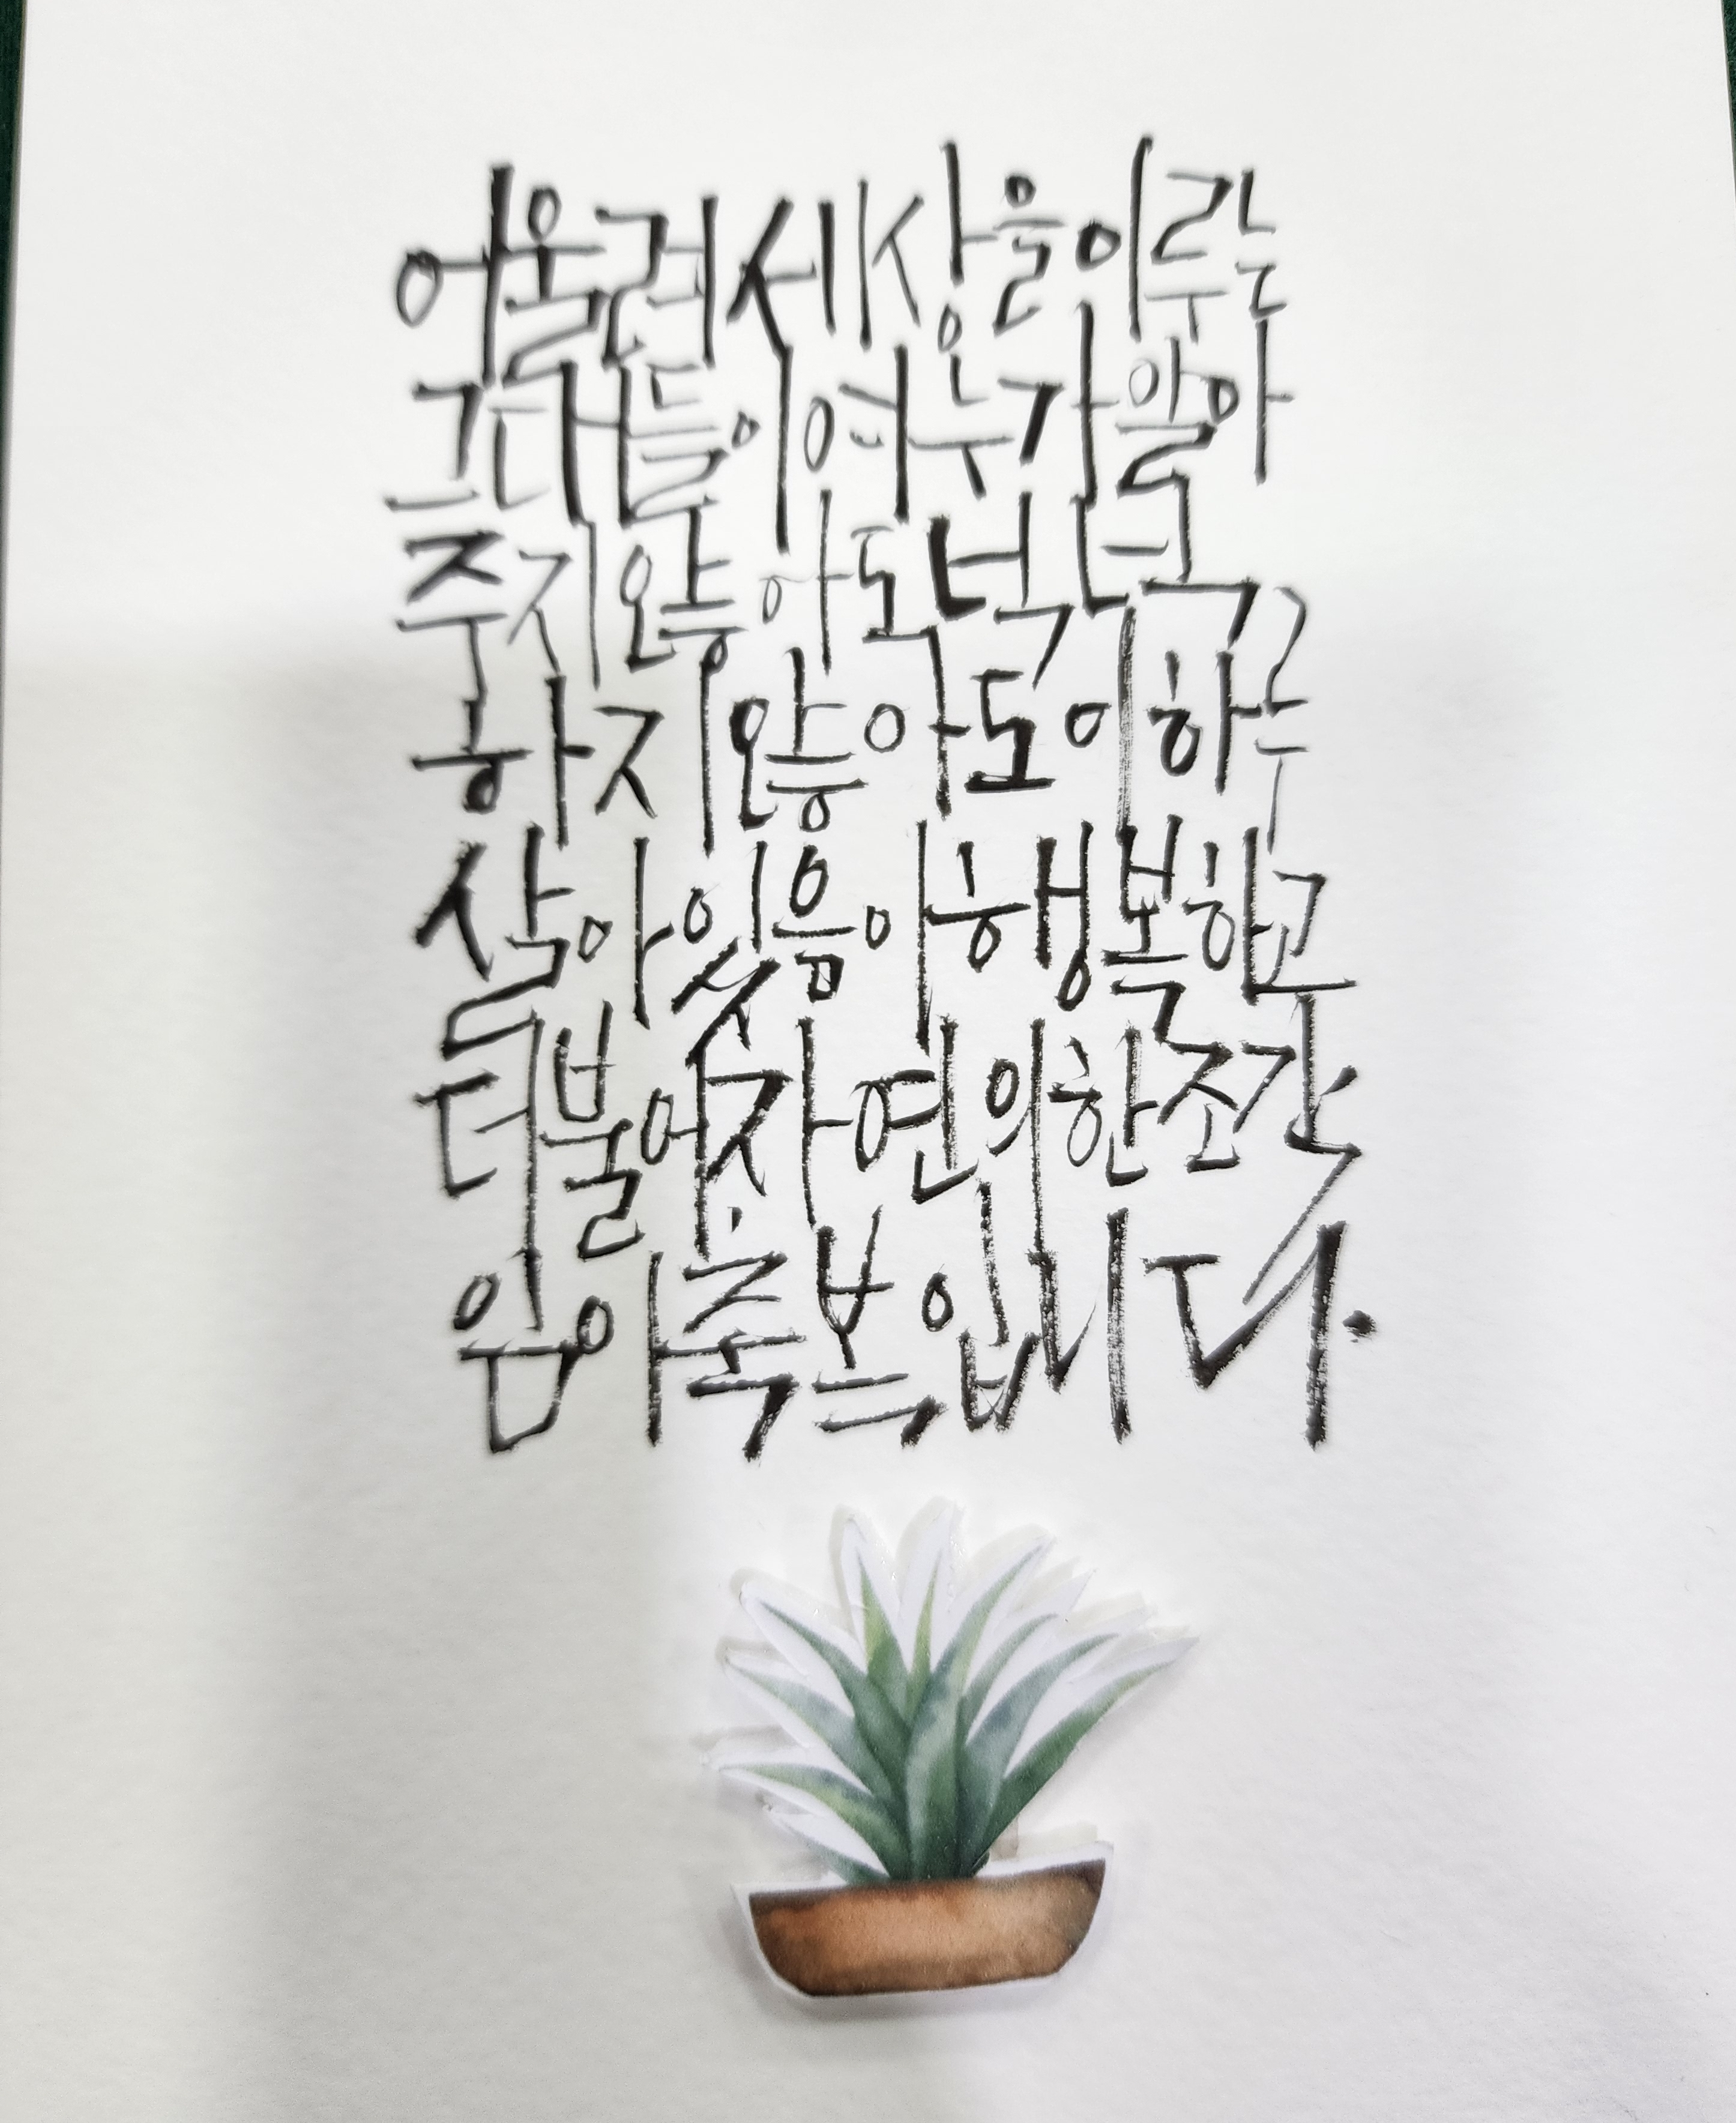 어울려세상을이루는
그대들이여누가알아
주지않아도넉넉
하지않아도이하루
살아있음이행복하고
더불어자연의한조각
임이축복입니다.